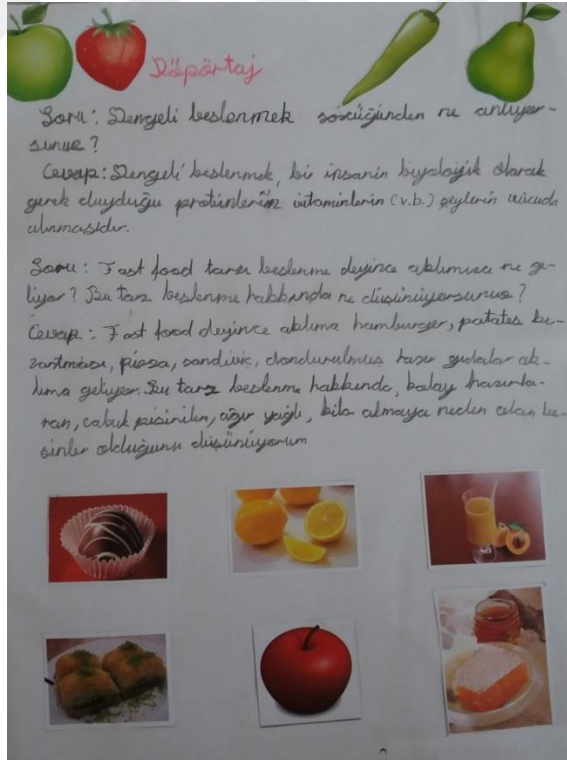 Röpörtaj
Soru: Dengeli beslenmek sözcüğünden ne anlıyor-
sunuz?
Cevap: Dengeli beslenmek, bir insanin biyolojik olarak
gerek duyduğu proteinlerin vitaminlerin (v.b.) şeylerin vücuda
alınmasıdır.
Soru: Fast food tarzı beslenme deyince aklımıza ne ge-
liyor? Bu tarz beslenme hakkında ne düşünüyorsunuz?
Cevap: Fast food deyince aklıma hamburger, patates kı-
zartması, pizza, sandiviç, dondurulmuş hazır gıdalar ak-
lıma geliyor. Bu tarz beslenme hakkında, kolay hazırla-
nan, çabuk pişirilen, ağır yağlı, kilo almaya neden olan be-
sinler olduğunu düşünüyorum